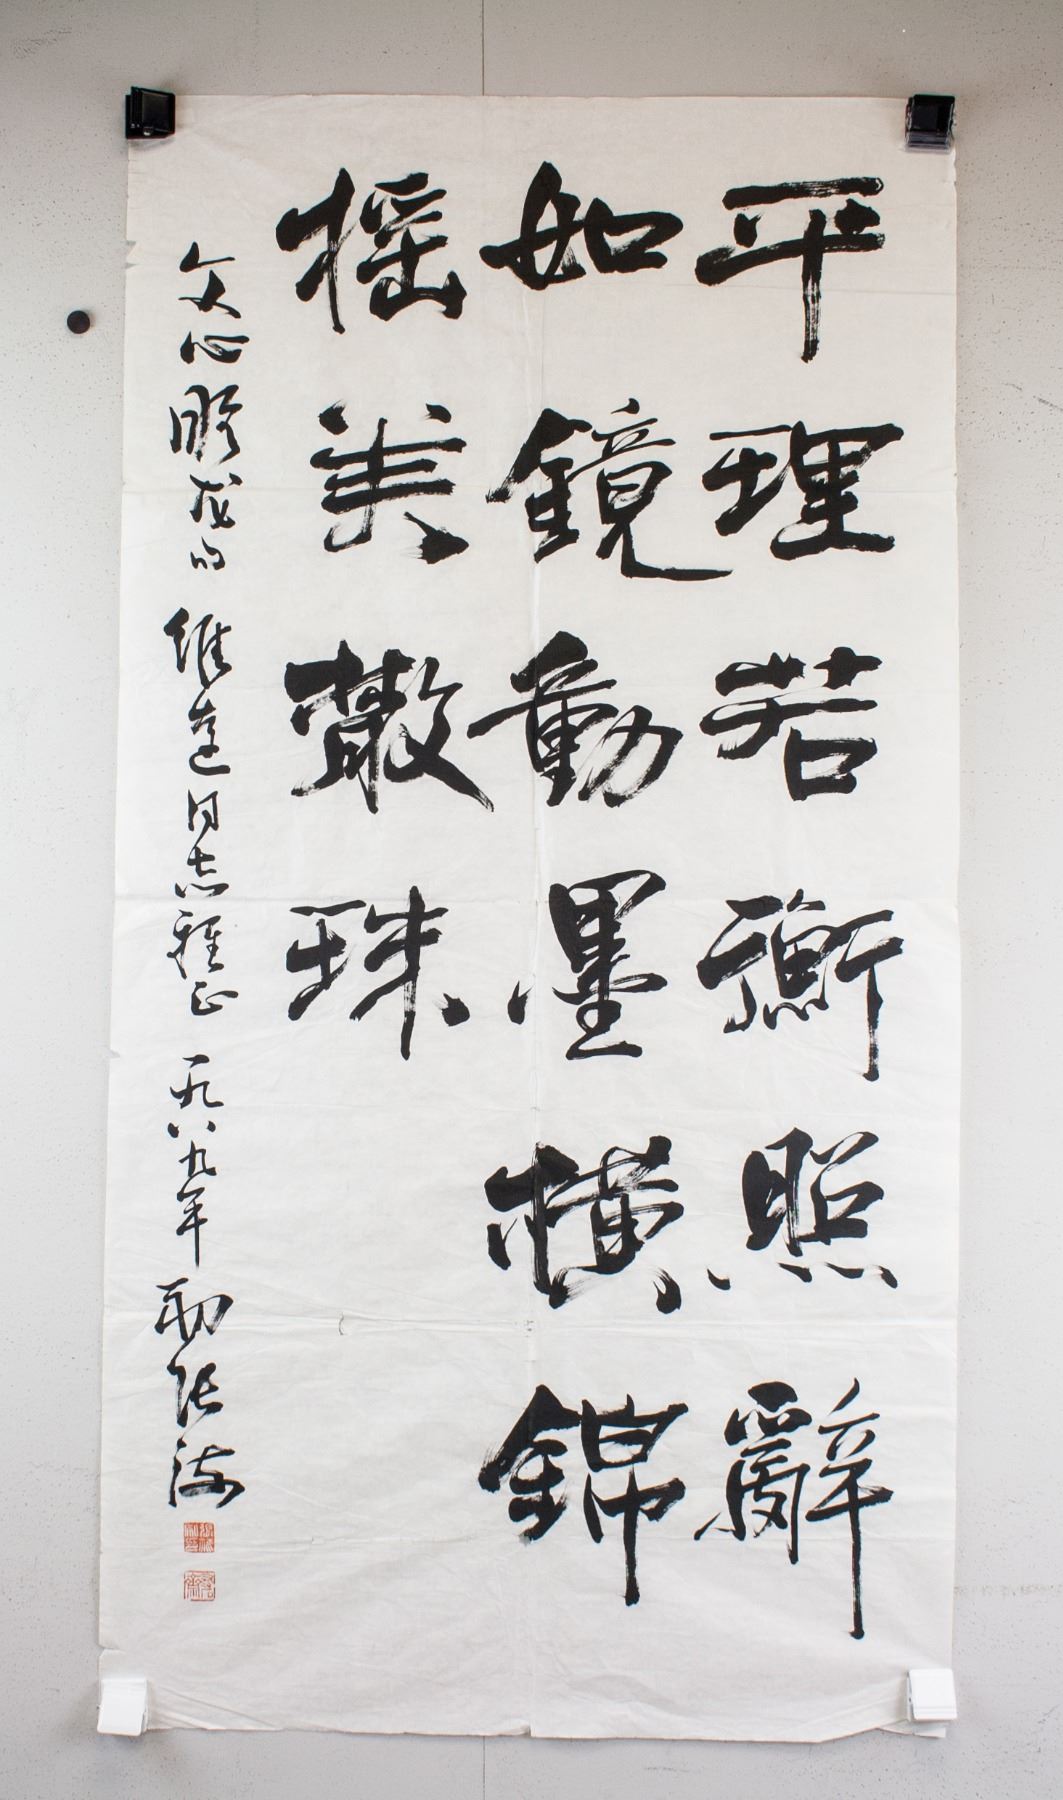 平理若衡照辭
如鏡動墨橫錦
摇筆散珠
文心雕龙句
維達同志雅正
一九八九年
勁張海